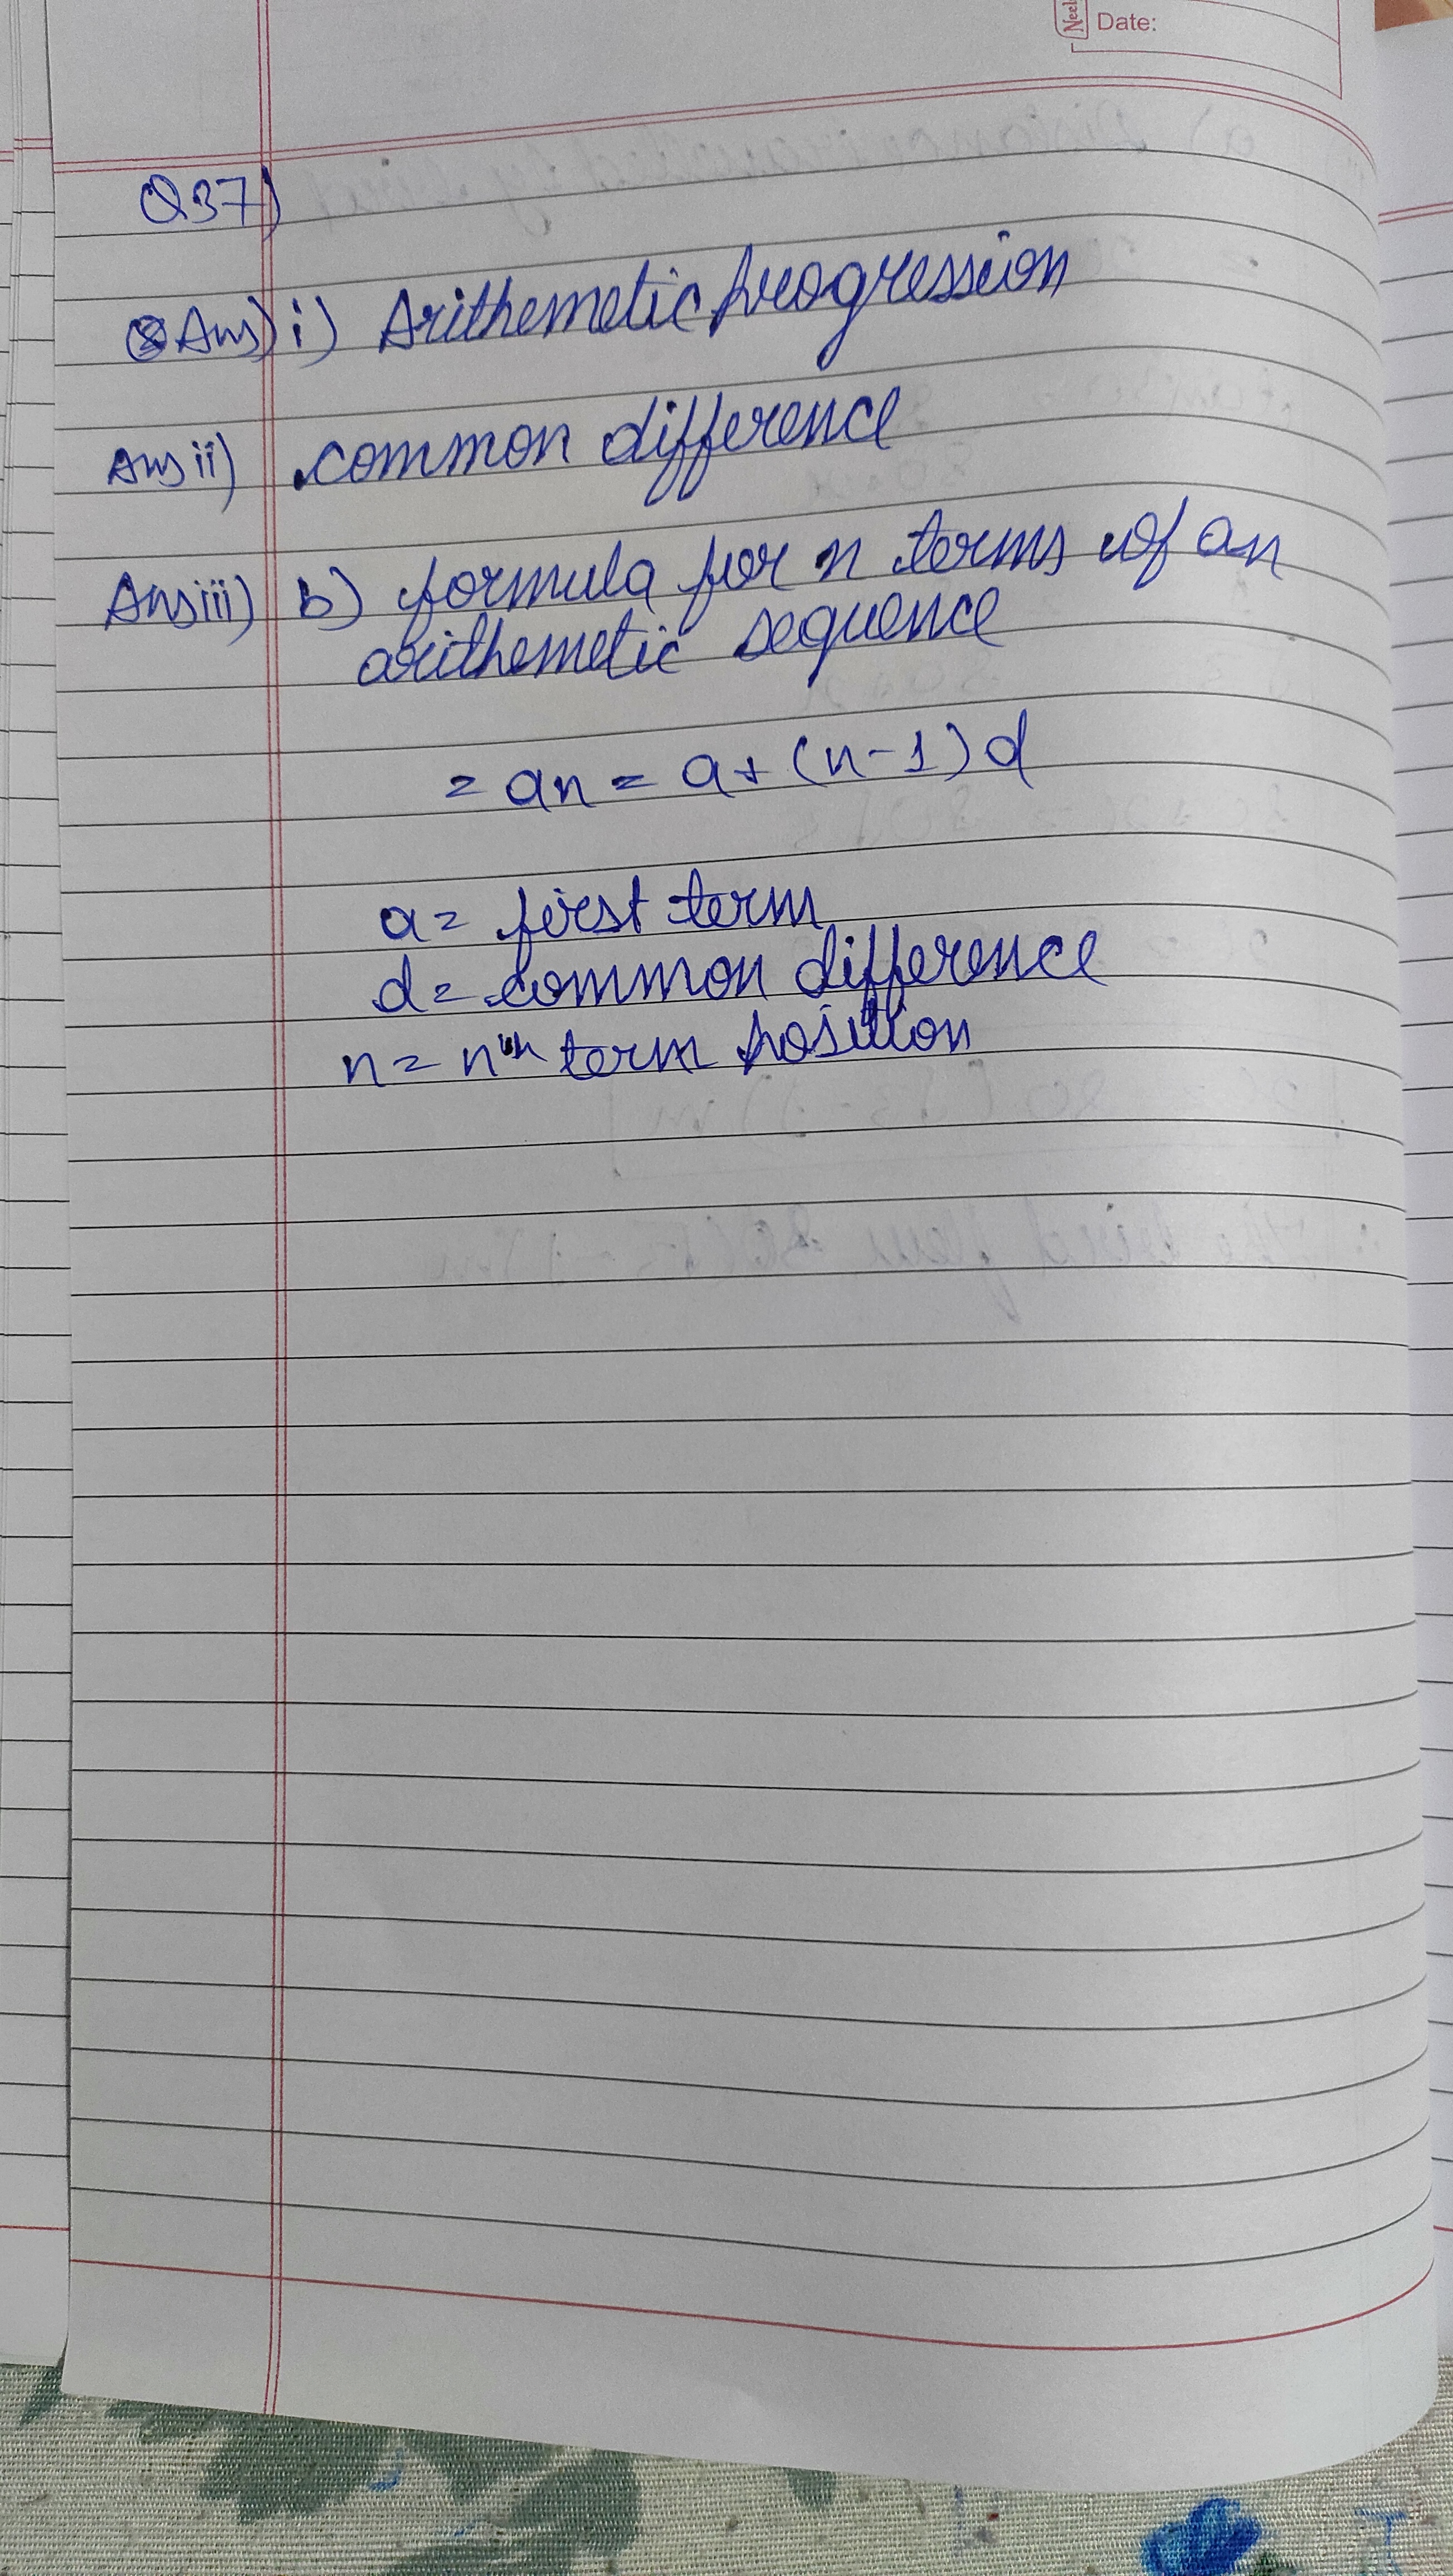 Date:
Q37)
Ans) i) Arithemetic progression
Ans ii) common difference
Ans iii) b) formula for n terms of an
arithemetic sequence
= an = a + (n-1) d
a = first term
d = common difference
n = nth term position